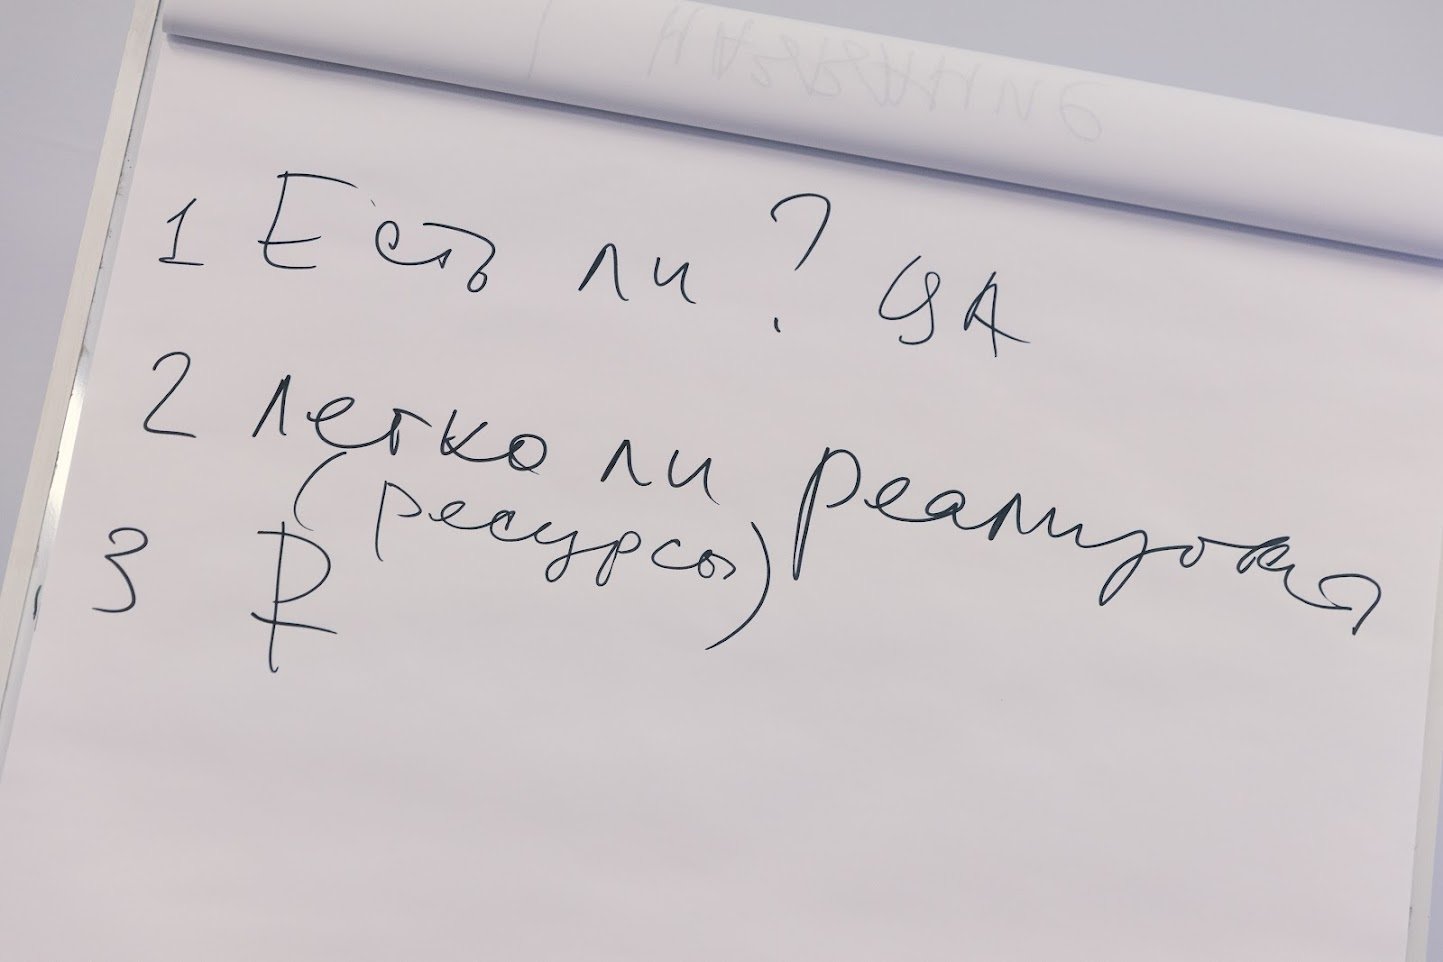 НАЗВАНИЕ
1 Есть ли? ЦА
2 легко ли
(ресурсы)
3 ₽